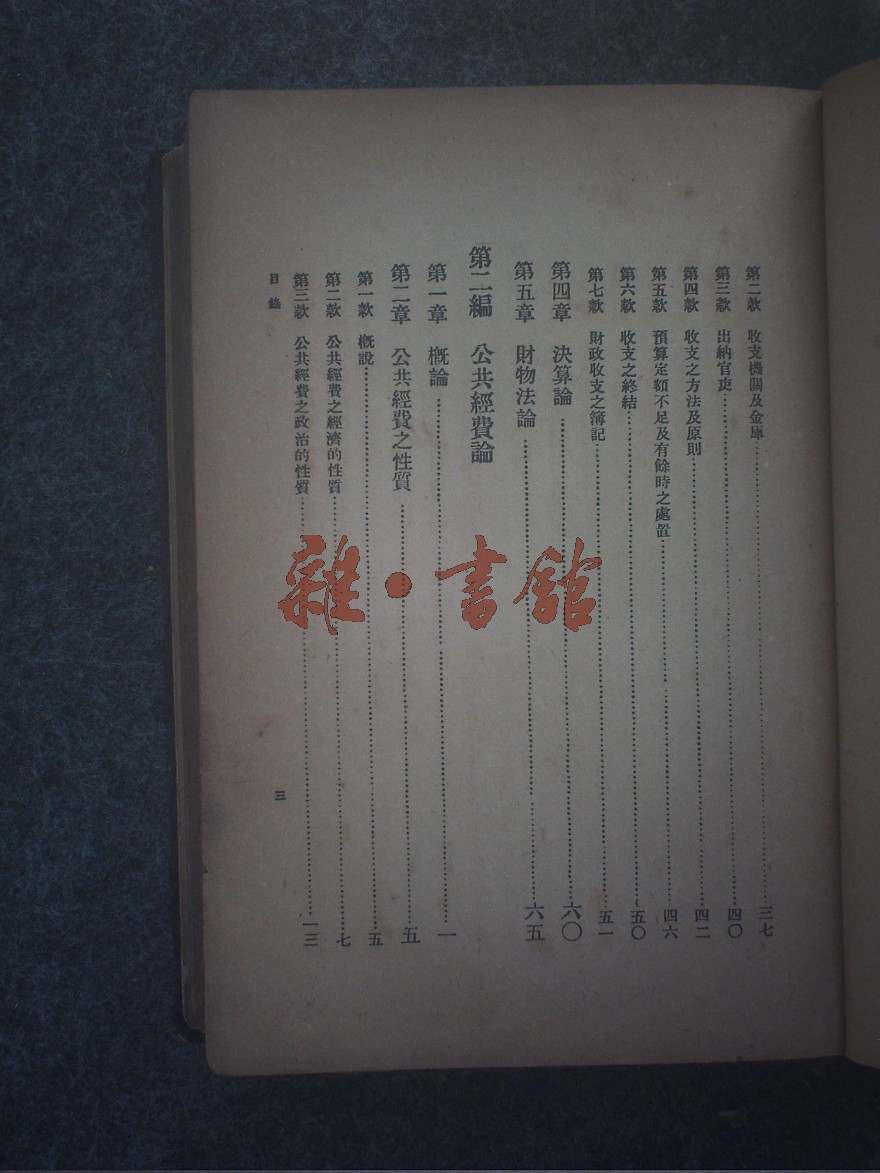 第二款 收支機關及金庫 三七
第三款 出納官吏 四〇
第四款 收支之方法及原則 四二
第五款 預算定額不足及有餘時之處置 四六
第六款 收支之終結 五〇
第七款 財政收支之簿記 五一
第四章 決算論 六〇
第五章 財物法論 六五
第二編 公共經費論
第一章 概論 一
第二章 公共經費之性質 五
第一款 概說 五
第二款 公共經費之經濟的性質 七
第三款 公共經費之政治的性質 一三
目錄 三
雜·書館